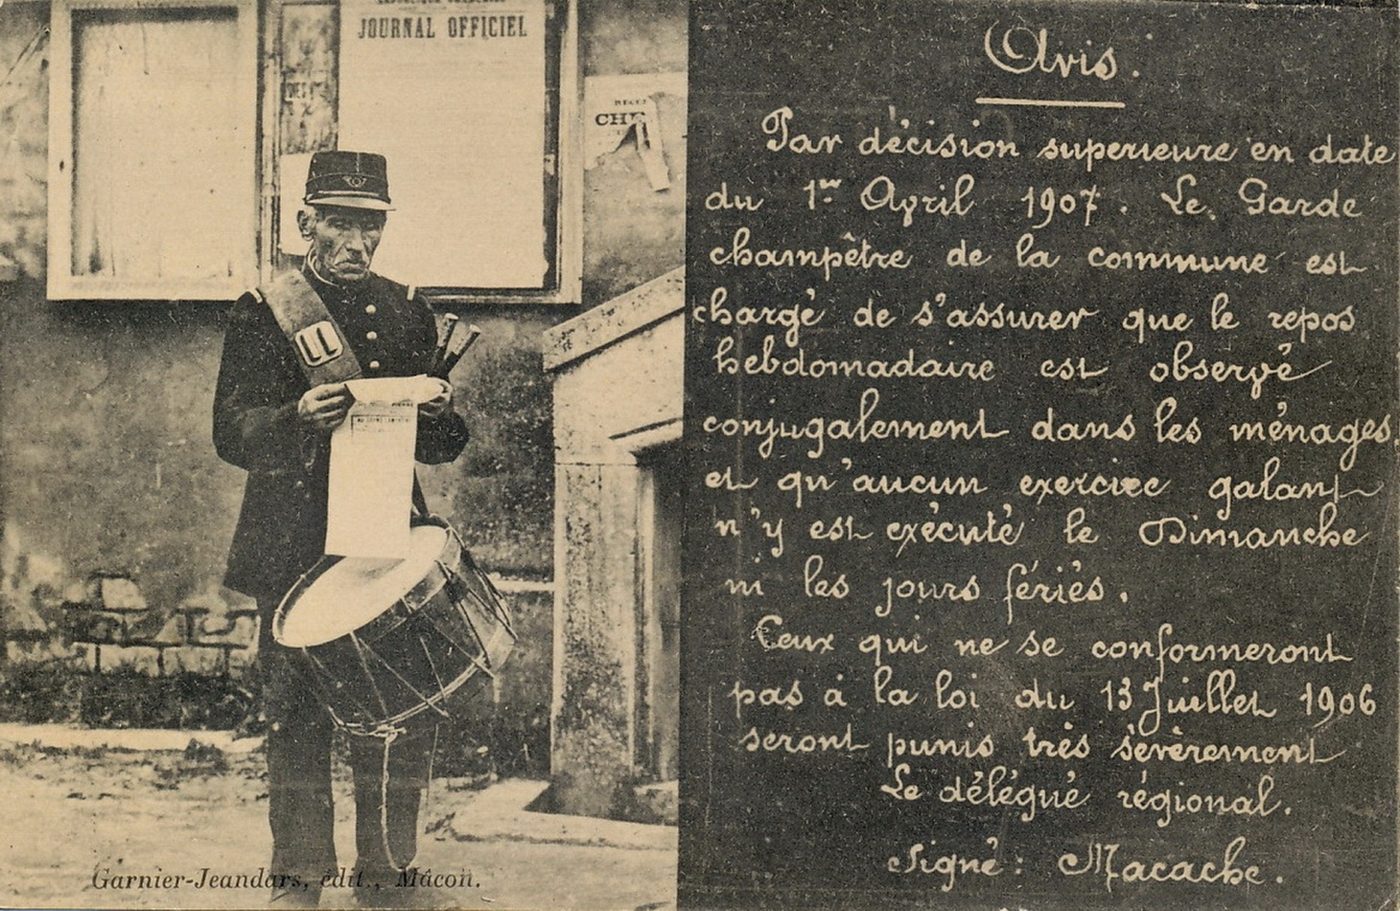 JOURNAL OFFICIEL
CHE
LL
Garnier-Jeandars, édit., Mâcon.
Avis.
Par décision superieure en date
du 1er April 1907. Le Garde
champêtre de la commune est
chargé de s'assurer que le repos
hebdomadaire est observé
conjugalement dans les ménages
et qu'aucun exercice galant
n'y est exécuté le Dimanche
ni les jours fériés.
Ceux qui ne se conformeront
pas à la loi du 13 Juillet 1906
seront punis très sévèrement
Le délégué régional.
Signé: Macache.